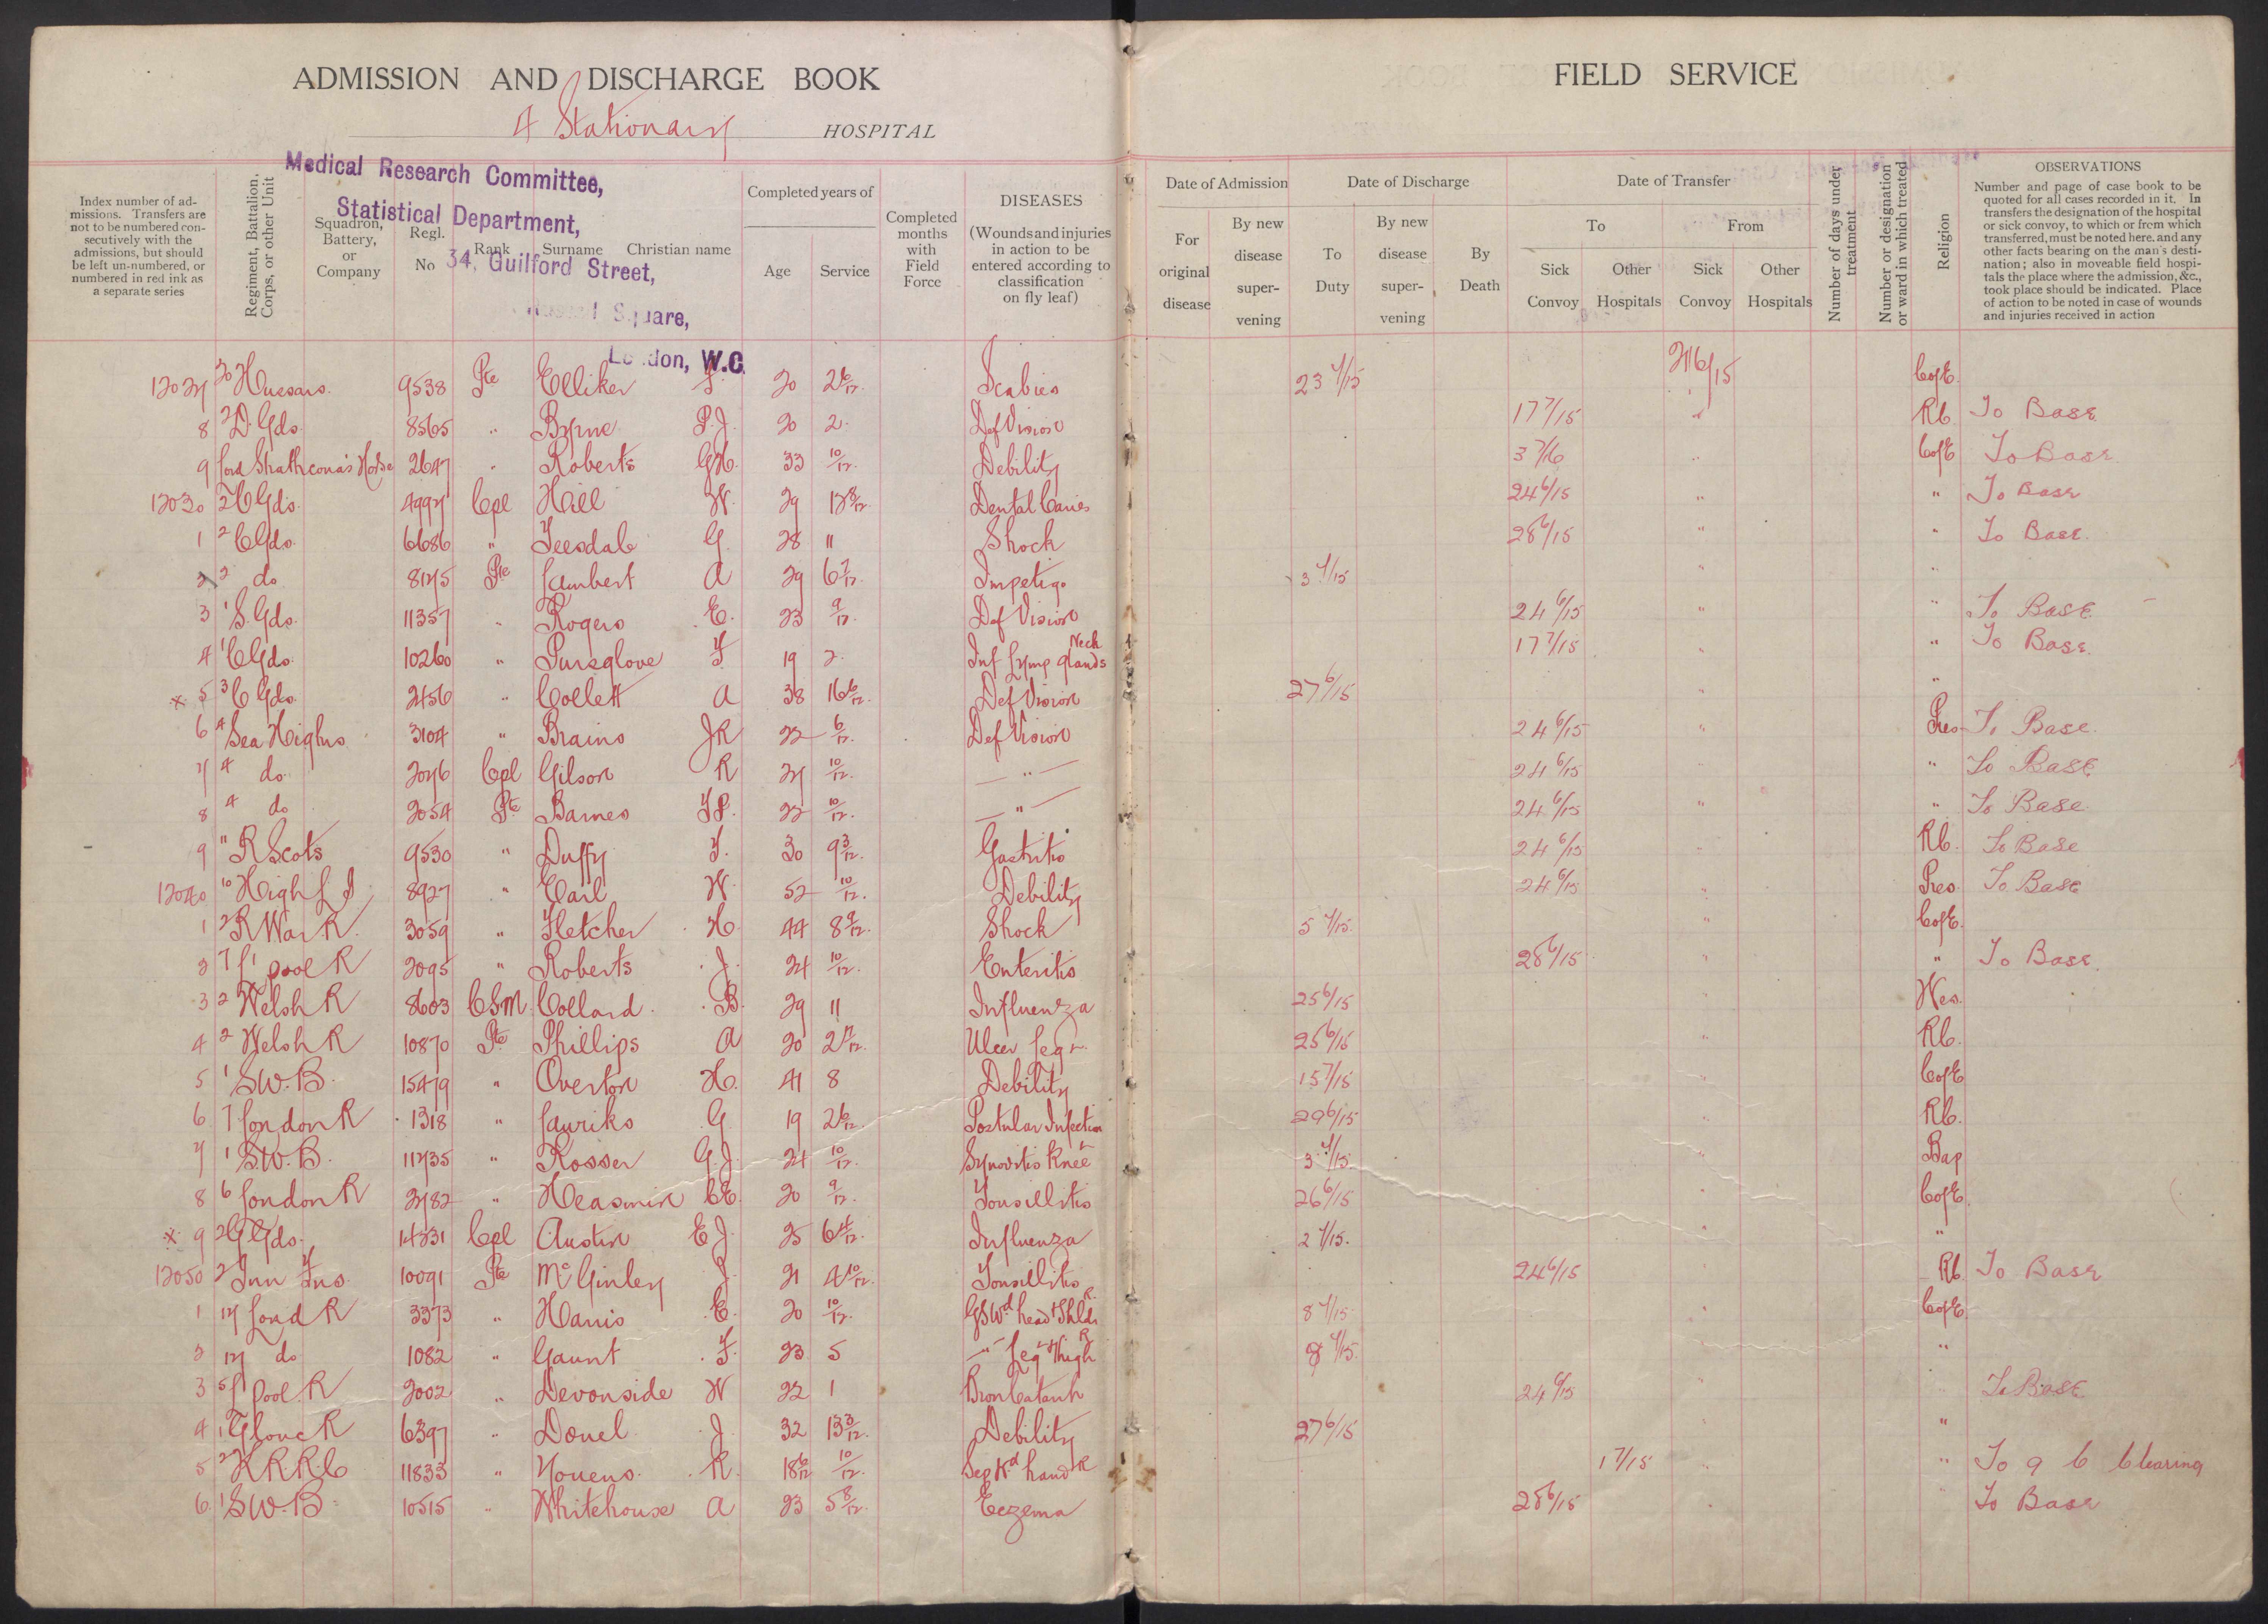 ADMISSION AND DISCHARGE BOOK
4 Stationary HOSPITAL
Medical Research Committee,
Statistical Department,
34, Guilford Street,
Square,
London, W.C.
Index number of admissions. Transfers are not to be numbered consecutively with the admissions, but should be left un-numbered, or numbered in red ink as a separate series
Regiment, Battalion, Corps, or other Unit
Squadron, Battery, or Company
Regl. No
Rank
Surname
Christian name
Completed years of
Age
Service
Completed months with Field Force
DISEASES
(Wounds and injuries in action to be entered according to classification on fly leaf)
FIELD SERVICE
Date of Admission
For original disease
By new disease supervening
Date of Discharge
To Duty
By new disease supervening
By Death
Date of Transfer
To
Sick Convoy
Other Hospitals
From
Sick Convoy
Other Hospitals
Number of days under treatment
Number or designation or ward in which treated
Religion
OBSERVATIONS
Number and page of case book to be quoted for all cases recorded in it. In transfers the designation of the hospital or sick convoy, to which or from which transferred, must be noted here, and any other facts bearing on the man's destination; also in moveable field hospitals the place where the admission, &c., took place should be indicated. Place of action to be noted in case of wounds and injuries received in action
12027 20 Hussars. 9538 Pte Elliker F. 20 2 6/12. Scabies 23 7/15 21 6/15 CofE.
8 2 D. Gds. 8565 " Byrne P.J. 20 2. Def Vision 17 7/15 " RC To Base
9 Lord Strathcona's Horse 2647 " Roberts G.H. 33 10/12. Debility " CofE To Base
12030 Gds. Cpl Hill W. 29 Dental Caries 24 6/15 " " To Base
1 2 C Gds. 6686 " Teesdale G. 28 11 Shock 28 6/15 " " To Base.
2 2 do 8175 Pte Lambert A 29 6 7/12. Impetigo 3 7/15 " "
3 1 S. Gds. 11357 " Rogers E. 23 9/12. Def Vision 24 6/15 " " To Base
4 1 C Gds. 10260 " Pursglove F 19 2. Inf Lymp glands Neck 17 7/15 " " To Base.
x 5 3 C Gds. 2456 " Collett A 38 16 6/12. Def Vision 27 6/15 " "
6 4 Sea Highrs 3104 " Brains JR 22 6/12. Def Vision 24 6/15 " Pres To Base.
7 4 do. 2076 Cpl Gilson R 27 10/12. — " — 24 6/15 " " To Base
8 4 do 2054 Pte Barnes 22 10/12. — " — 24 6/15 " " To Base.
9 11 R Scots 9530 " Duffy T. 30 9 3/12. Gastritis 24 6/15 " RC. To Base
12040 10 High L I. 8927 " Earl W. 52 10/12. Debility 24 6/15 " Pres. To Base
1 2 R War R. 3059 " Fletcher H. 44 8 9/12. Shock 5 7/15. " CofE.
2 7 L'pool R 2095 " Roberts J. 24 10/12. Enteritis 28 6/15 " " To Base.
3 2 Welsh R 8603 CSM. Collard B. 29 11 Influenza 25 6/15 Wes.
4 2 Welsh R 10870 Pte Phillips A 20 Ulcer Leg L. 25 6/15 " RC.
5 1 S.W.B. 15479 " Overton H. 41 8 Debility 15 7/15 " CofE
6 7 London R 1318 " Lauriks G 19 2 6/12. Postular Infection 29 6/15 " RC.
7 1 S.W.B. 11735 " Rosser G.J. 24 10/12. Synovitis Knee L 3 7/15. " Bap
8 6 London R 2782 " Heasmin CE. 20 9/12. Tonsillitis 26 6/15 " CofE.
x 9 2 G Gds. 14831 Cpl Austin E J. 25 6 4/12. Influenza 2 7/15. " "
12050 2 Inn Fus. 10091 Pte McGinley J. 21 4 10/12. Tonsillitis 24 6/15 " RC. To Base
1 17 Lond R 3373 " Harris E. 20 10/12. GSWd head & Shldr R. 8 7/15 " CofE.
2 17 do 1082 " Gaunt F. 23 5 — " — Leg L Thigh R 8 7/15. " "
3 5 L'pool R 2002 " Devonside W 22 1 Bron Catarrh 24 6/15 " " To Base
4 1 Glouc R 6397 " Donel J. 32 13 3/12. Debility 27 6/15 "
5 2 K.R.R.C 11833 " Youens. R. 18 6/12 10/12. Sep Wd hand R 1 7/15 " " To 9 C Clearing
6 1 S.W.B. 10515 " Whitehouse A 23 5 8/12. Eczema 28 6/15 " " To Base